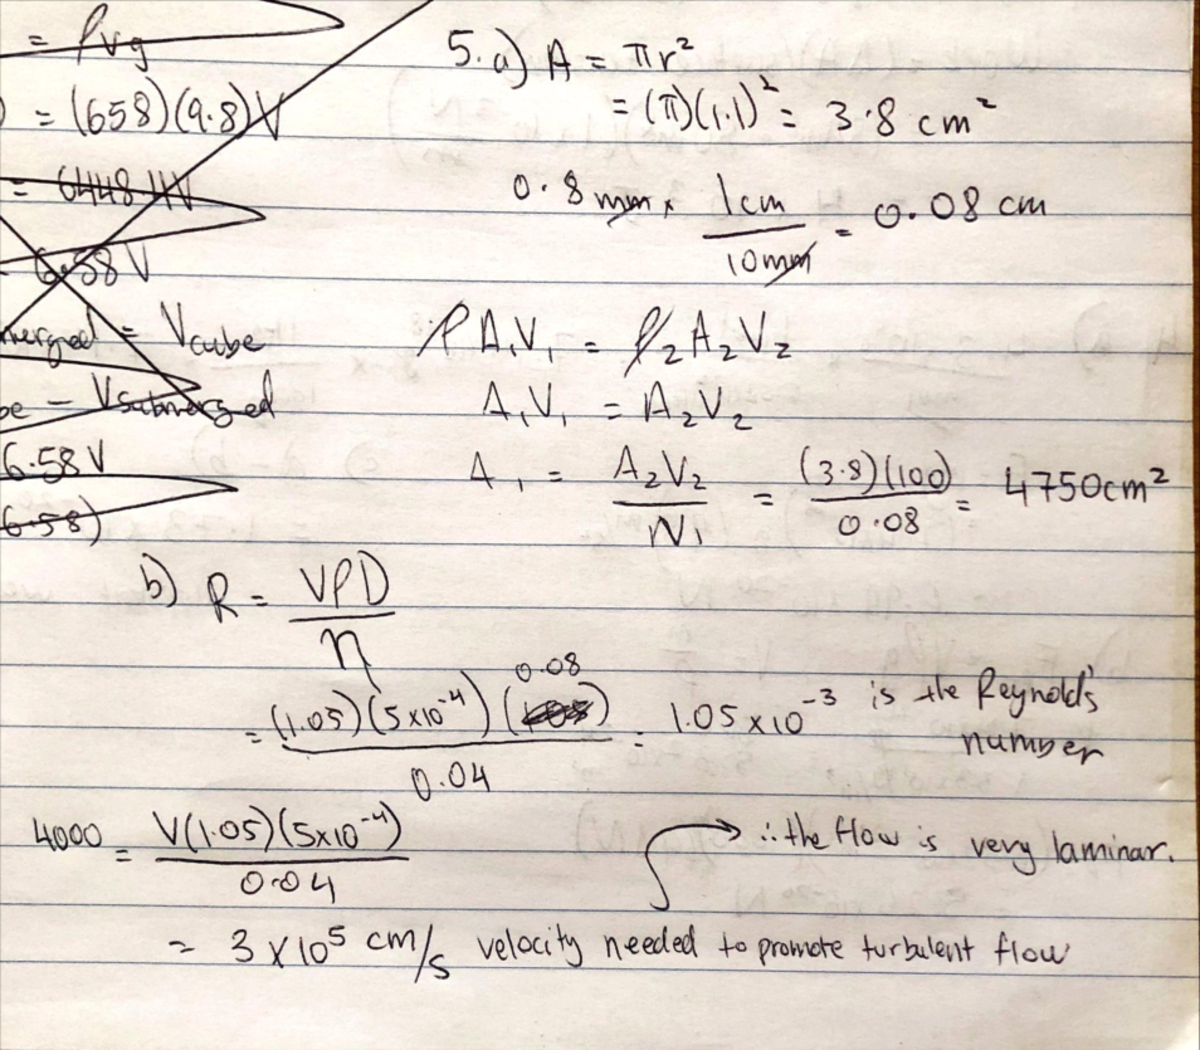 = ρVg
= (658)(9.8)V
= 6448.4V
6.58 V
merged = Vcube
be - Vsubmerged
6.58 V
6.58)
5. a) A = πr²
= (π)(1.1)² = 3.8 cm²
0.8 mm x 1cm / 10mm = 0.08 cm
ρA₁V₁ = ρ₂A₂V₂
A₁V₁ = A₂V₂
A₁ = A₂V₂ / V₁ = (3.8)(100) / 0.08 = 4750cm²
b) R = VρD / η
= (1.05)(5x10⁻⁴)(0.08) / 0.04 = 1.05x10⁻³ is the Reynold's number
4000 = V(1.05)(5x10⁻⁴) / 0.04
∴ the flow is very laminar.
= 3x10⁵ cm/s velocity needed to promote turbulent flow